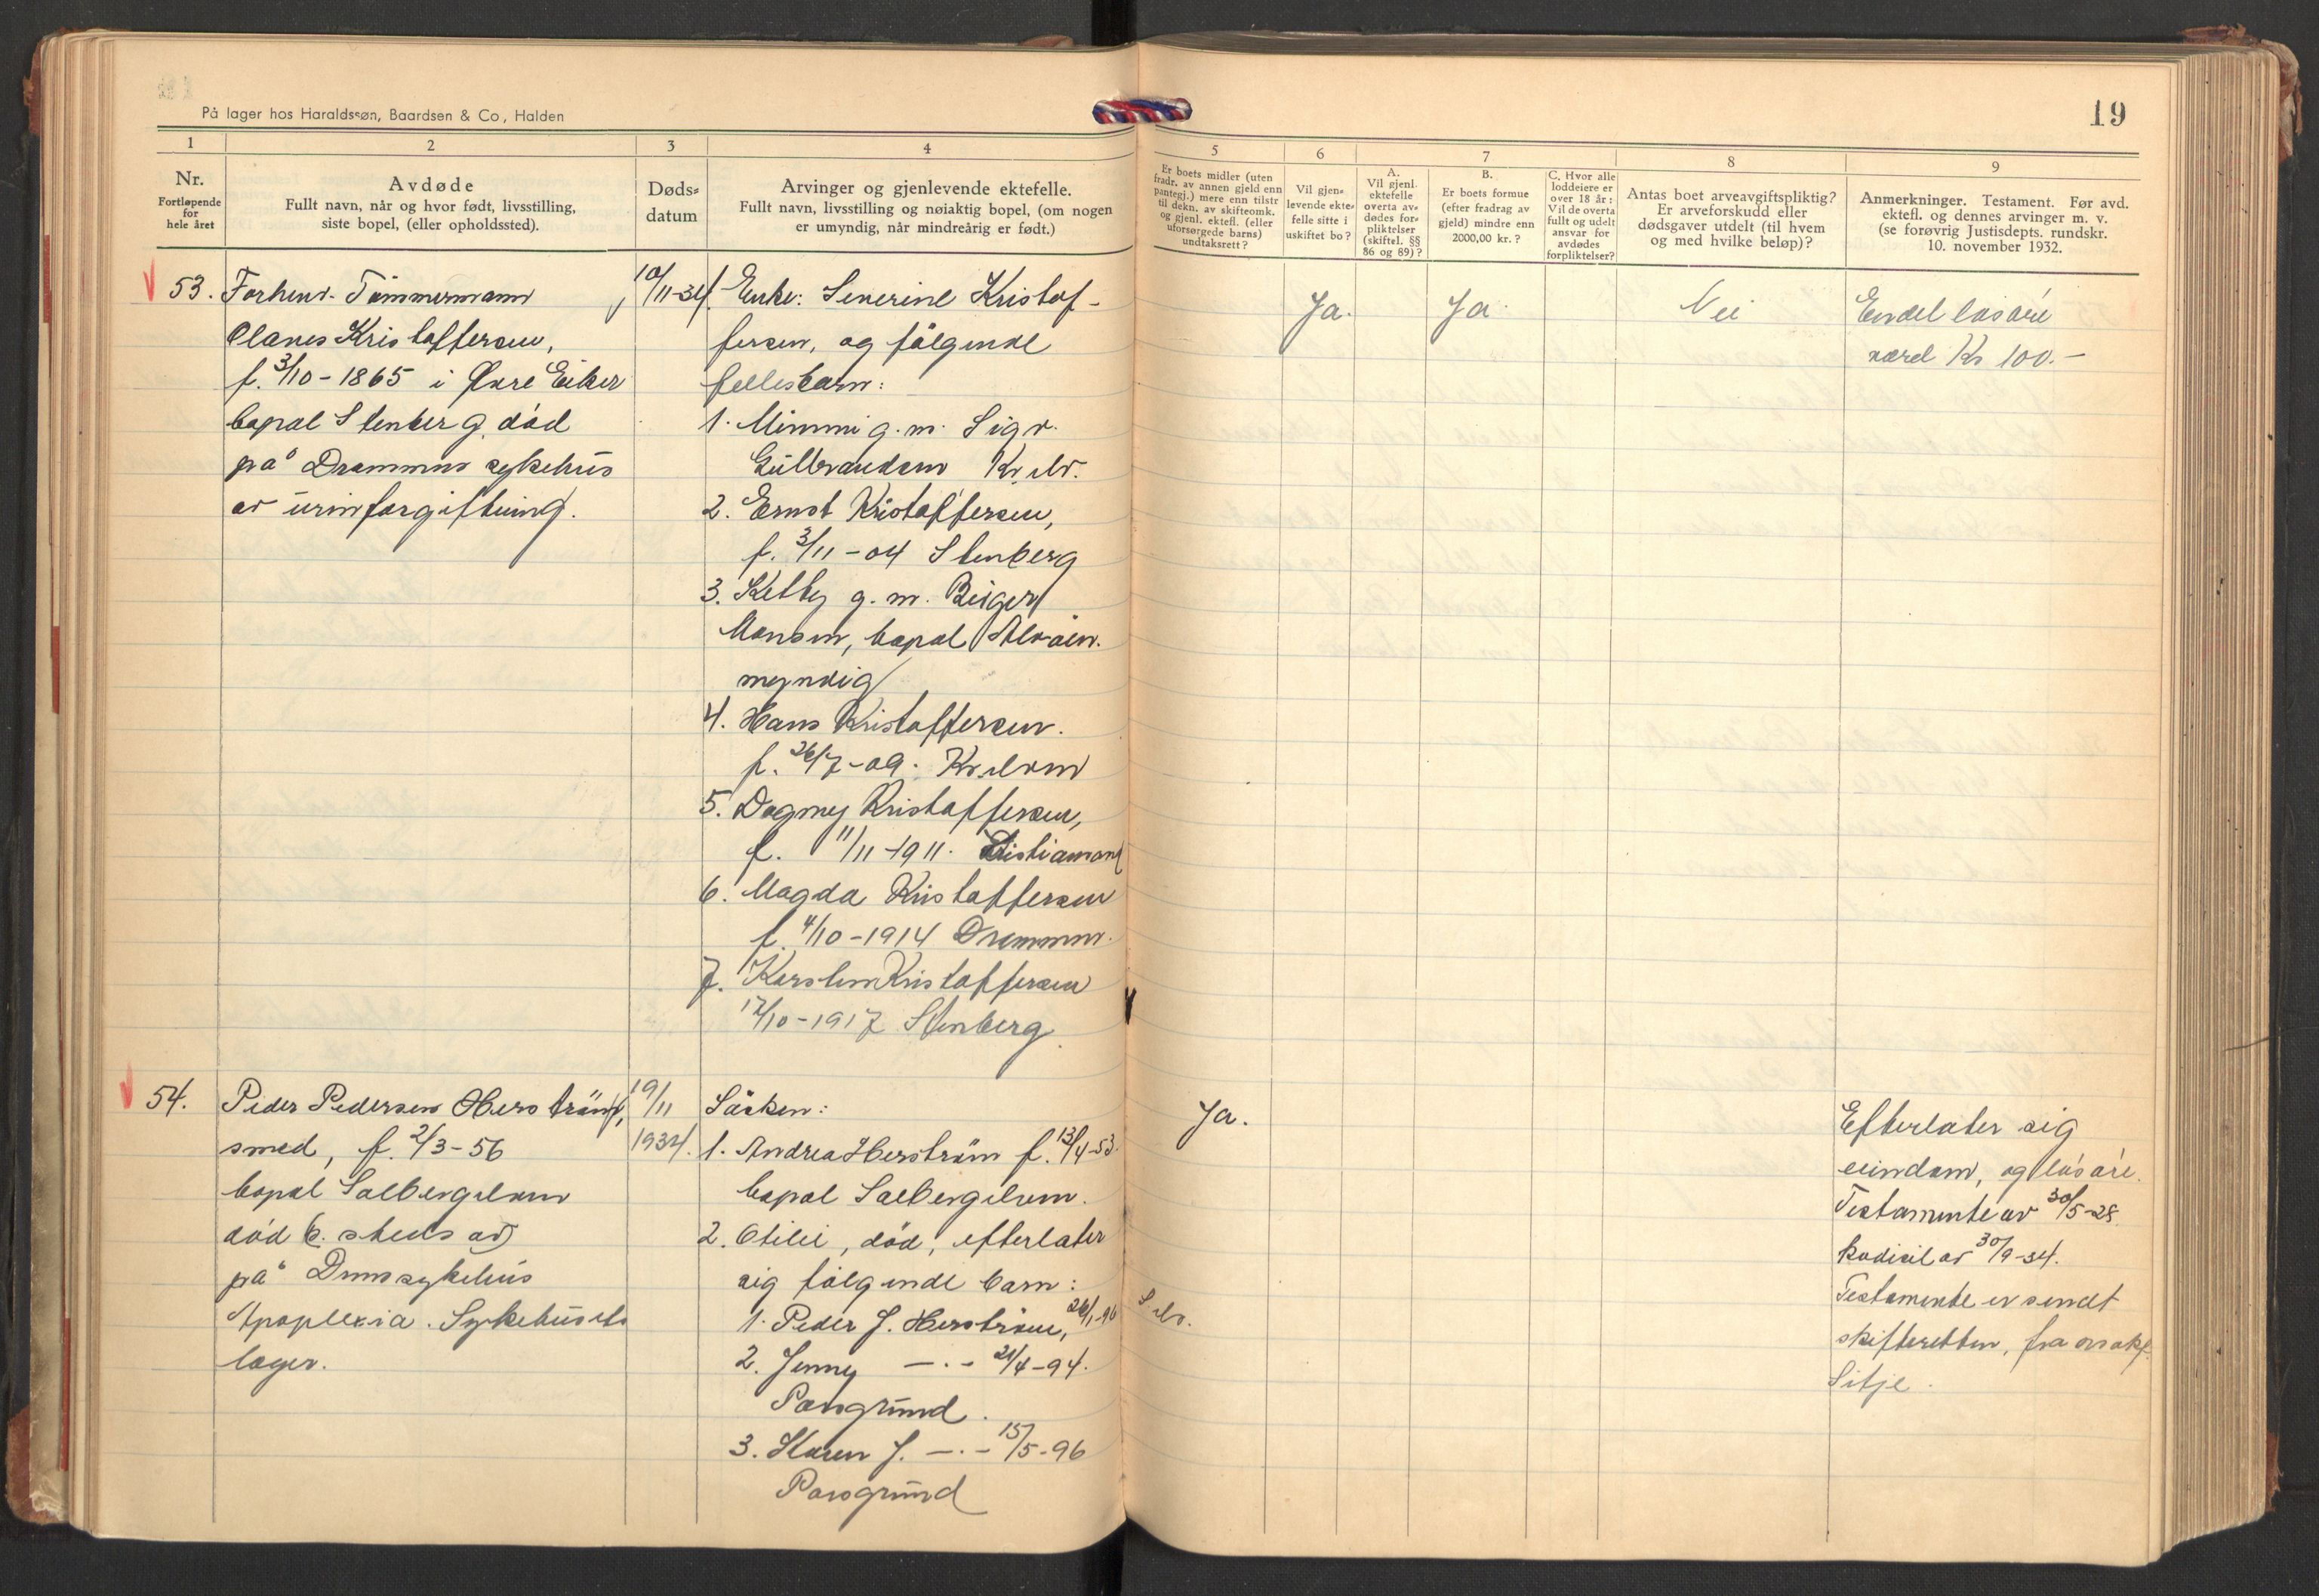 19
På lager hos Haraldssøn, Baardsen & Co, Halden
1
2
3
4
5
6
7
8
9
Nr.
Fortløpende
for
hele året
Avdøde
Fullt navn, når og hvor født, livsstilling,
siste bopel, (eller opholdssted).
Døds-
datum
Arvinger og gjenlevende ektefelle.
Fullt navn, livsstilling og nøiaktig bopel, (om nogen
er umyndig, når mindreårig er født.)
Er boets midler (uten
fradr. av annen gjeld enn
pantegj.) mere enn tilstr.
til dekn. av skifteomk.
og gjenl. ektefl. (eller
uforsørgede barns)
undtaksrett?
Vil gjen-
levende ekte-
felle sitte i
uskiftet bo?
A.
Vil gjenl.
ektefelle
overta av-
dødes for-
pliktelser
(skiftel. §§
86 og 89)?
B.
Er boets formue
(efter fradrag av
gjeld) mindre enn
2000,00 kr.?
C. Hvor alle
loddeiere er
over 18 år:
Vil de overta
fullt og udelt
ansvar for
avdødes
forpliktelser?
Antas boet arveavgiftspliktig?
Er arveforskudd eller
dødsgaver utdelt (til hvem
og med hvilke beløp)?
Anmerkninger. Testament. Før avd.
ektefl. og dennes arvinger m. v.
(se forøvrig Justisdepts. rundskr.
10. november 1932.
53. Forhenv. Tømmermann
Olanes Kristoffersen,
f. 3/10-1865 i Øvre Eiker
bopæl Stenberg, død
på Drammens sykehus
av urinforgiftning.
10/11-34.
Enke: Severine Kristof-
fersen, og følgende
fellesbarn:
1. Mimmi g. m. Sigv.
Gulbrandsen Kr.elv.
2. Ernst Kristoffersen,
f. 3/11-04 Stenberg
3. Ketty g. m. Birger
Monsen, bopæl
myndig
4. Hans Kristoffersen.
f. 26/7-09. Kr.elven
5. Dagmey Kristoffersen,
f. 11/11-1911.
6. Magda Kristoffersen
f. 4/10-1914 Drammen.
7. Karsten Kristoffersen
17/10-1917 Stenberg.
Ja.
Ja.
Nei
Endel løsøre
værd Kr 100.-
54. Peder Pedersen Herstrøm,
smed, f. 2/3-56
bopæl Solbergelven
død b. steds av
på Drms sykehus
Apoplexia. Sykehusets
læger.
19/11
1934.
Søsken:
1. Andrea Herstrøm f. 13/4-53.
bopæl Solbergelven.
2. Otilie, død, efterlater
sig følgende barn:
1. Peder J. Herstrøm, 26/1-90
S.elv.
2. Jenny —.— 21/4-94.
Porsgrund.
3. Karen J. —.— 15/5-96
Porsgrund
Ja.
Efterlater sig
eiendom, og løsøre.
Testamente av 30/5-28.
Kodicil av 30/9-34.
Testamente er sendt
skifteretten, fra o.r.sakf.
Sitje.